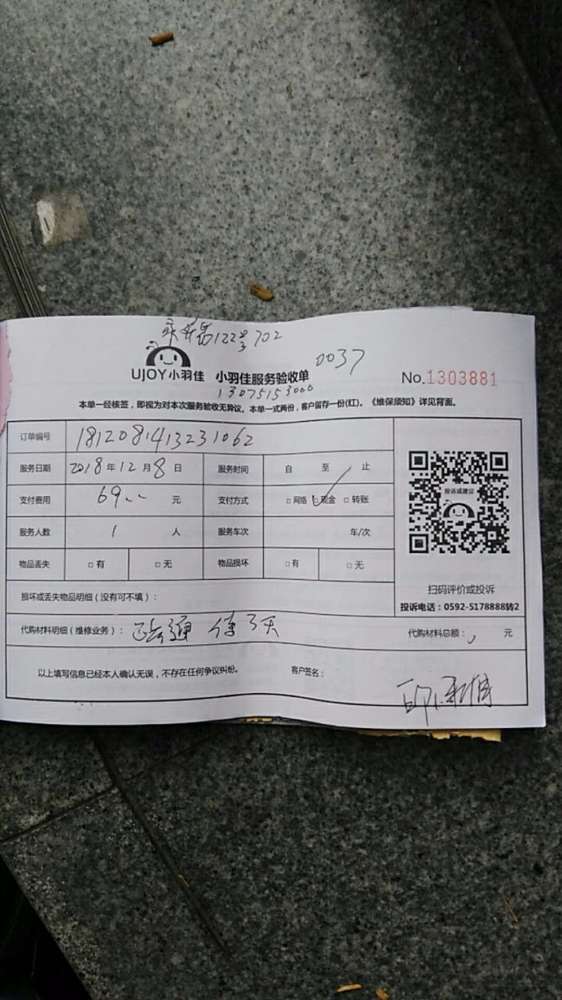 122号702
0037
UJOY小羽佳 小羽佳服务验收单
No.1303881
13075153000
本单一经核签，即视为对本次服务验收无异议。本单一式两份，客户留存一份(红)。《维保须知》详见背面。
订单编号 181208413231062
服务日期 2018年12月8日 服务时间 自 至 止
支付费用 69.00 元 支付方式 □网络 ☑现金 □转账
服务人数 1 人 服务车次 车/次
物品丢失 □有 □无 物品损坏 □有 □无
投诉或建议
扫码评价或投诉
投诉电话：0592-5178888转2
损坏或丢失物品明细（没有可不填）：
代购材料明细（维修业务）：
代购材料总额： 元
以上填写信息已经本人确认无误，不存在任何争议纠纷。 客户签名：